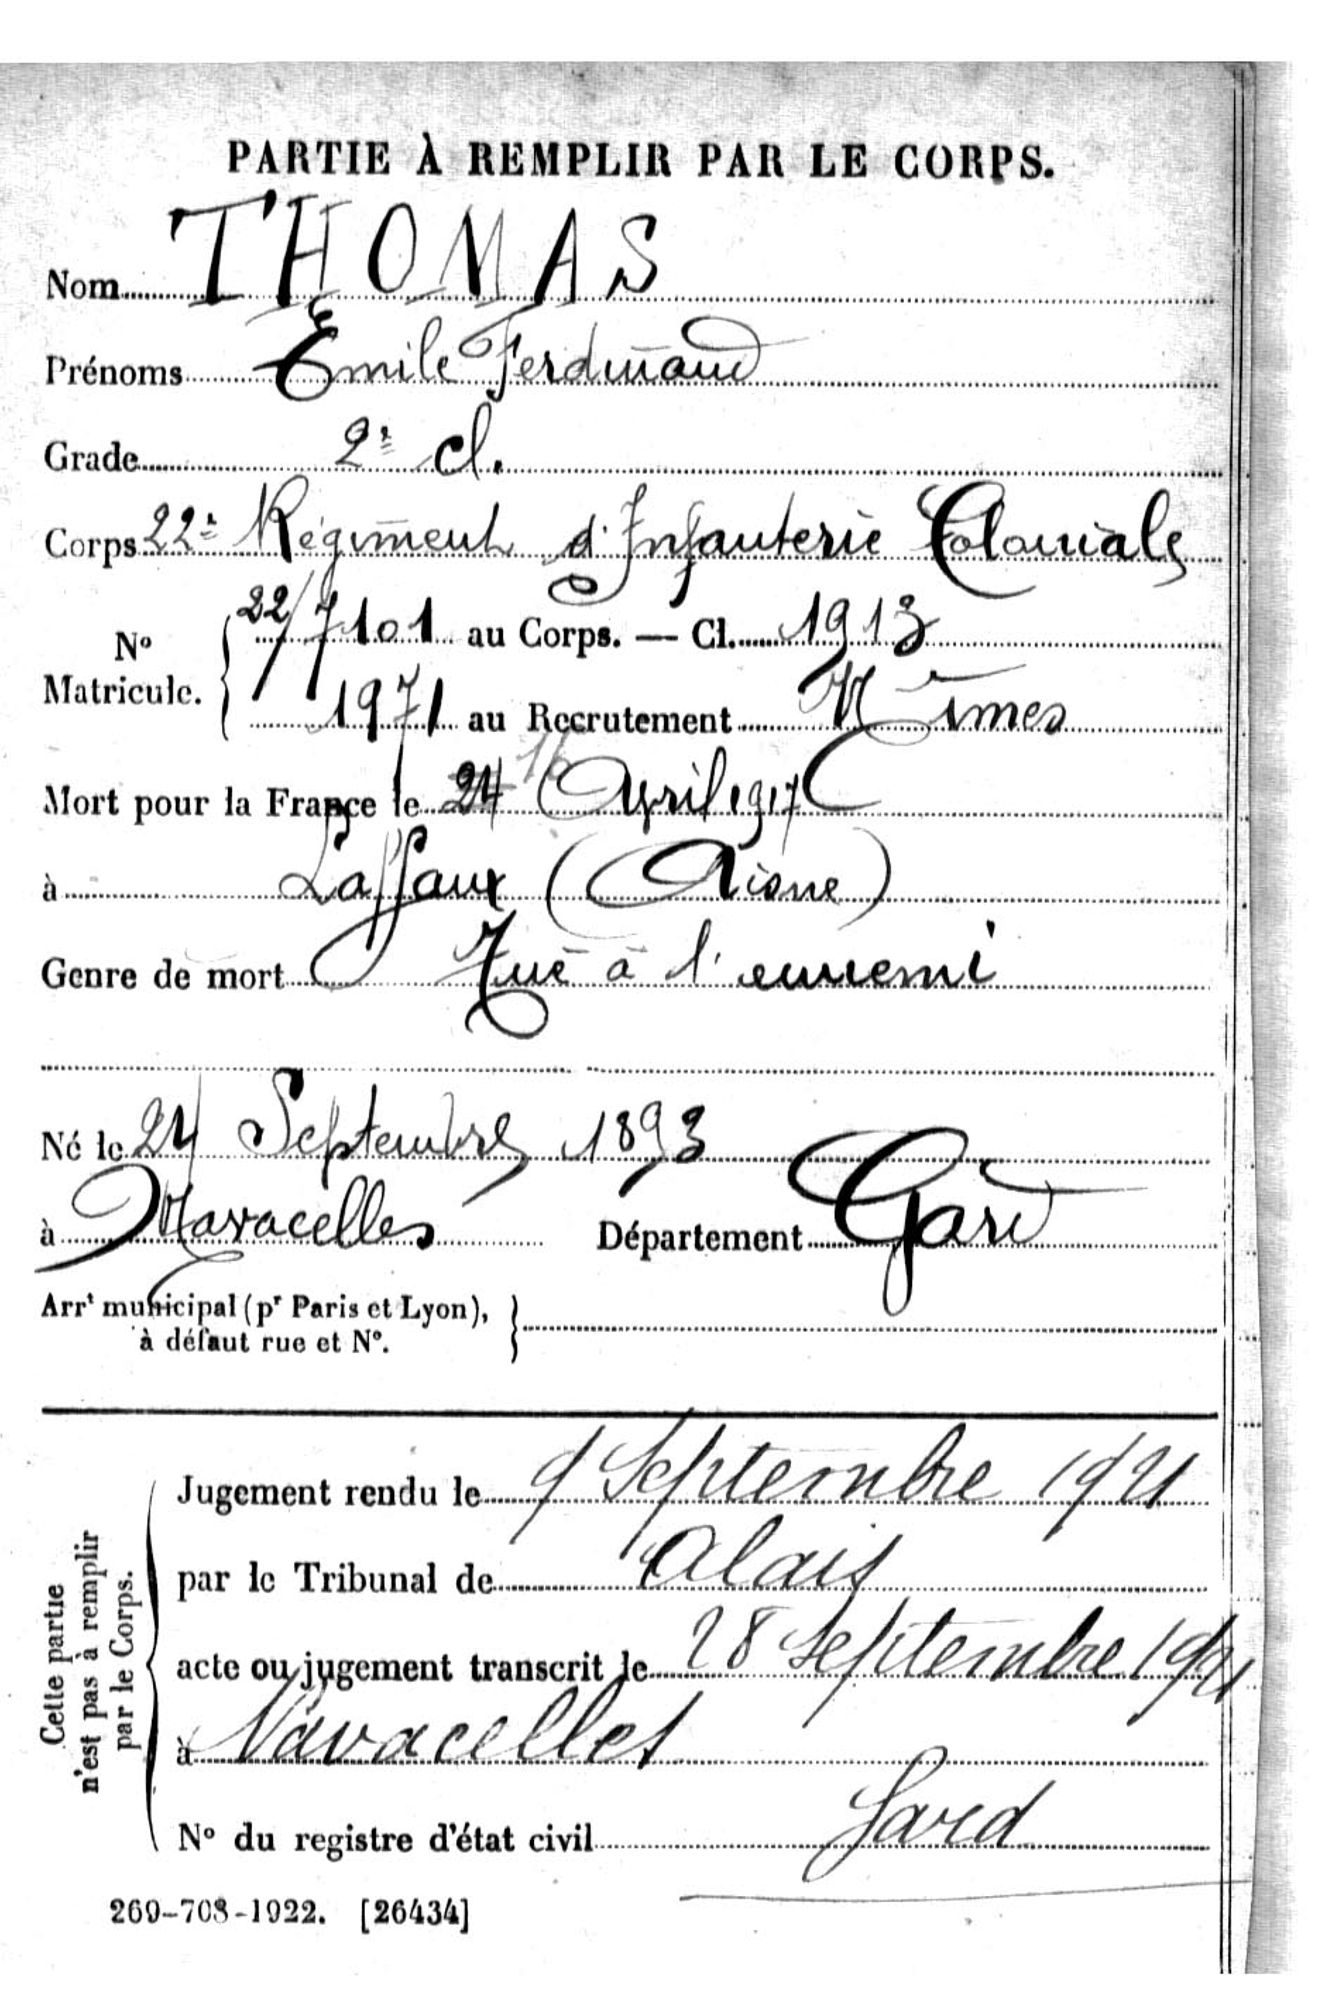 PARTIE À REMPLIR PAR LE CORPS.
Nom THOMAS
Prénoms Emile Ferdinand
Grade 2e cl.
Corps 22e Régiment d'Infanterie Coloniale
No Matricule. 22/7101 au Corps. — Cl. 1913
1971 au Recrutement Nimes
16
Mort pour la France le 24 Avril 1917
à Laffaux (Aisne)
Genre de mort Tué à l'ennemi
Né le 24 Septembre 1893
à Navacelles Département Gard
Arrt municipal (pr Paris et Lyon),
à défaut rue et No.
Cette partie n'est pas à remplir par le Corps.
Jugement rendu le 9 Septembre 1921
par le Tribunal de Alais
acte ou jugement transcrit le 28 Septembre 1921
à Navacelles
Gard
No du registre d'état civil
269-708-1922. [26434]